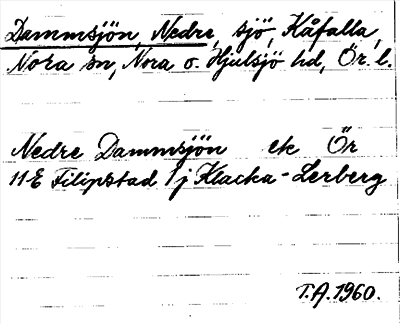 Dammsjön, Nedre, sjö, Kåfalla,
Nora sn, Nora o. Hjulsjö hd, Ör. l.
Nedre Dammsjön ek Ör
11 E Filipstad 1 j Klacka-Lerberg
T.A. 1960.